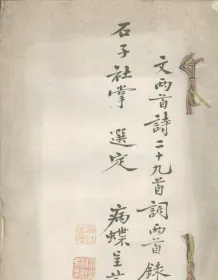 文兩首詩二十九首詞兩首錄
石子社掌 選定 病蝶呈